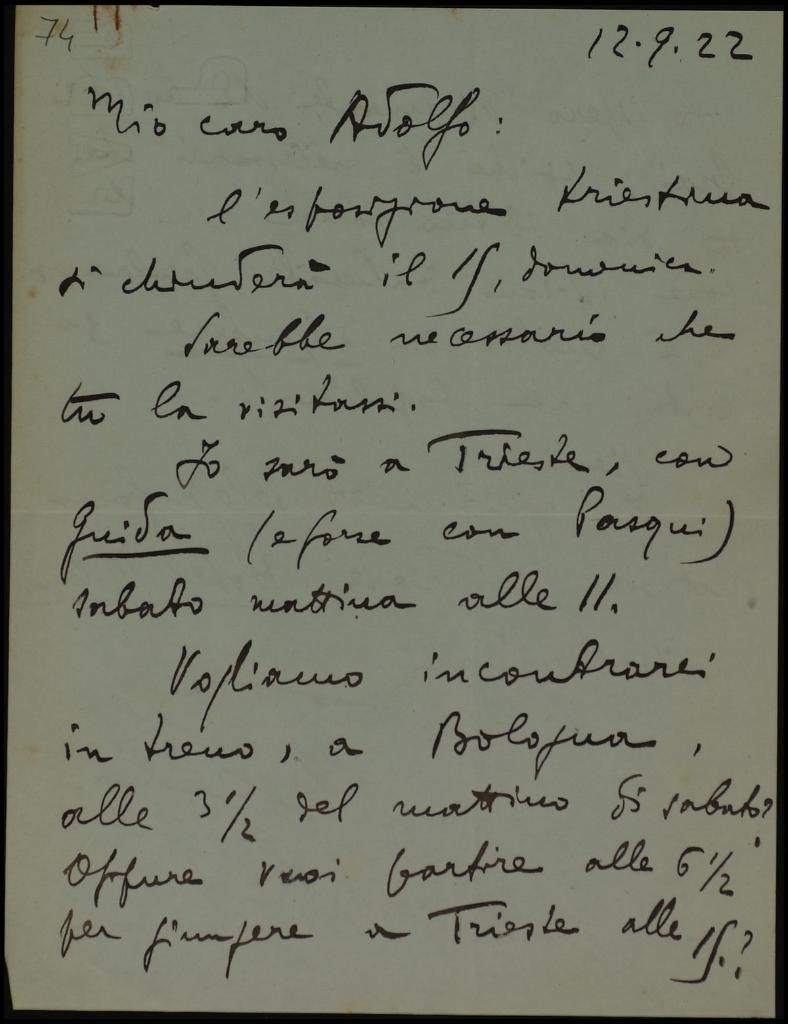 74
12.9.22
Mio caro Adolfo:
l'esposizione triestina
si chiuderà il 15, domenica.
Sarebbe necessario che
tu la visitassi.
Io sarò a Trieste, con
Guida (e forse con Pasqui)
sabato mattina alle 11.
Vogliamo incontrarci
in treno, a Bologna,
alle 3 1/2 del mattino di sabato?
Oppure vuoi partire alle 6 1/2
per giungere a Trieste alle 15.?